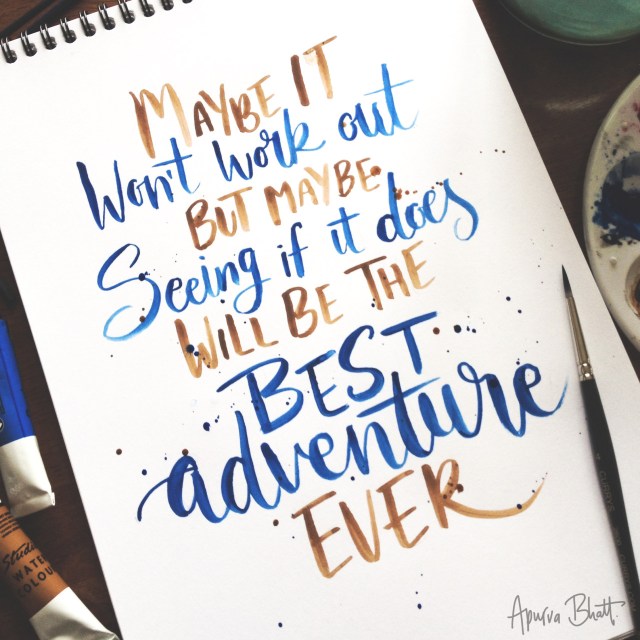 MAYBE IT
Won't work out
BUT MAYBE
Seeing if it does
WILL BE THE
BEST
adventure
EVER
Studio
WATER
COLOUR
Apurva Bhatt.